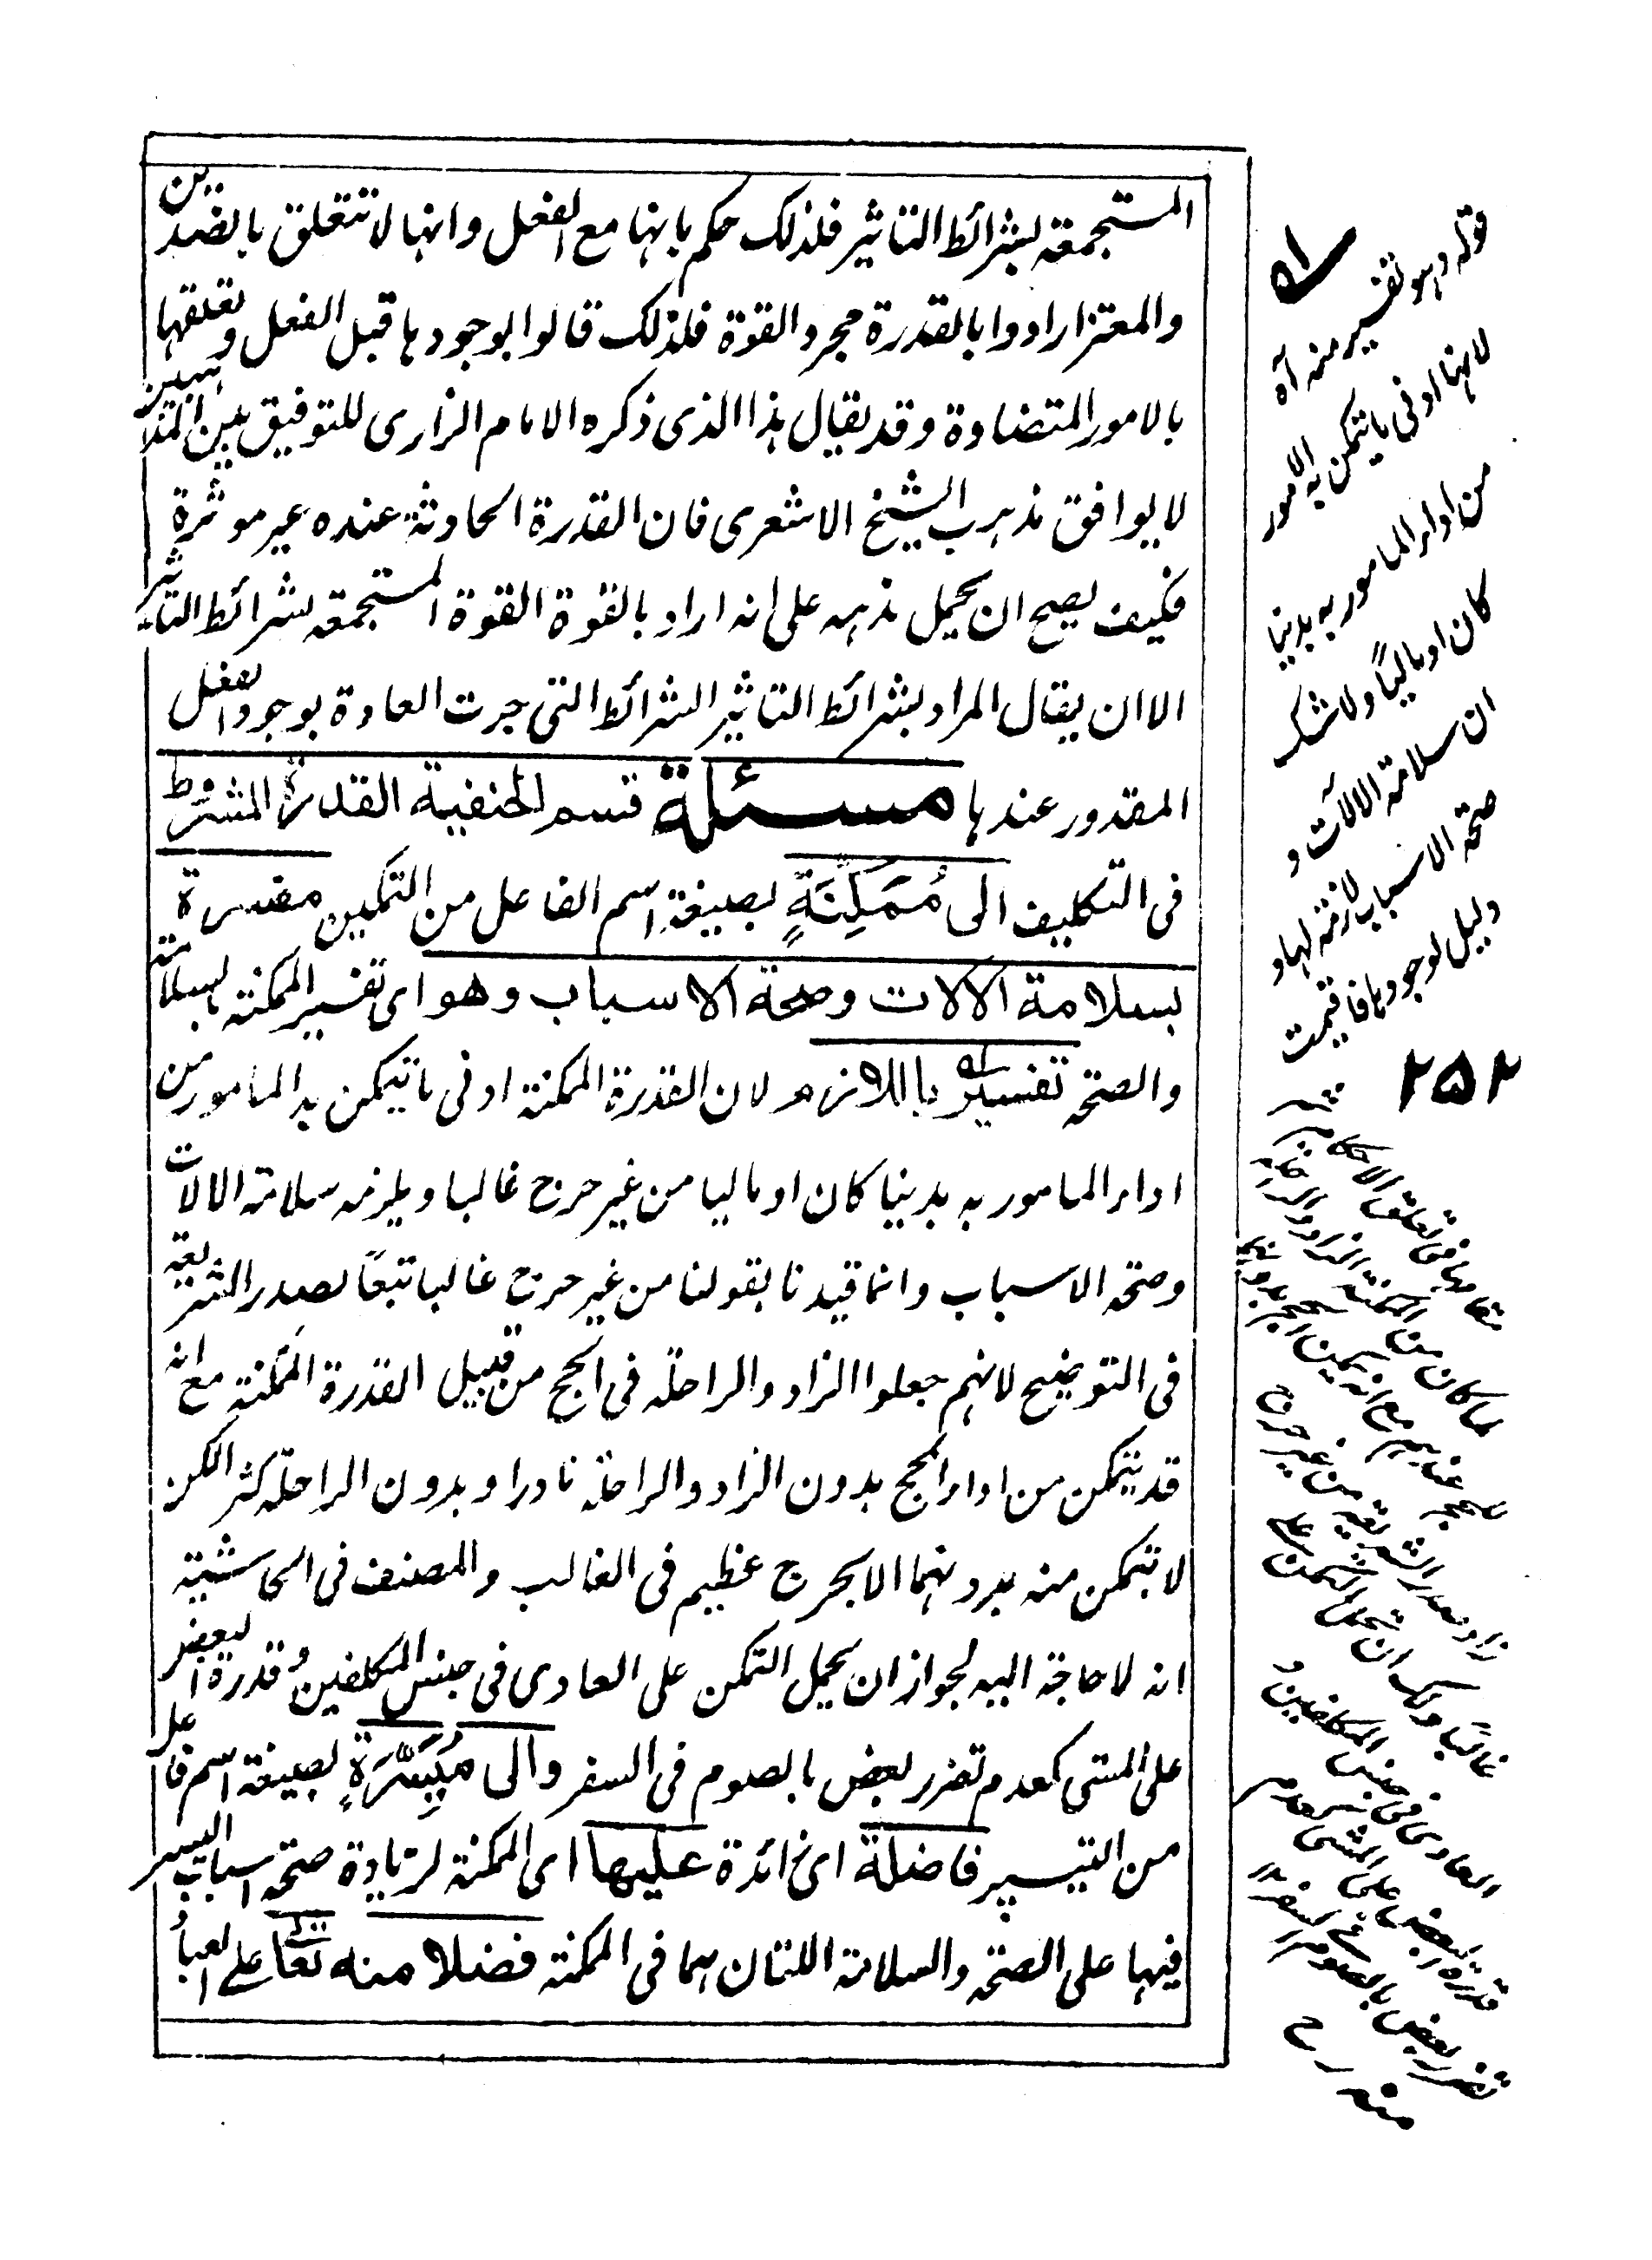 المستجمعة بشرائط التاثير فلذلك حكم بانها مع الفعل وانها لا تتعلق بالضدين
والمعتز ارادوا بالقدرة مجرد القوة فلذلك قالوا بوجودها قبل الفعل وتعلقها
بالامور المتضادة وقد يقال هذا الذى ذكره الامام الرازى للتوفيق بين المذهبين
لا يوافق مذهب الشيخ الاشعرى فان القدرة الحادثة عنده غير موثرة
فكيف يصح ان يحمل مذهبه على انه اراد بالقوة القوة المستجمعة بشرائط التاثير
الا ان يقال المراد بشرائط التاثير الشرائط التى جرت العادة بوجود الفعل
المقدور عندها مسئلة قسم الحنفية القدرة المشروط
فى التكليف الى مُمَكِّنَةٍ بصيغة اسم الفاعل من التمكين مفسرة
بسلامة الآلات وصحة الاسباب وهو اى تفسير الممكنة بالسلامة
والصحة تفسير باللازم لان القدرة الممكنة ادنى ما يتمكن به المامور من
اداء المامور به بدنيا كان او ماليا من غير حرج غالبا ويلزمه سلامة الالات
وصحة الاسباب وانما قيدنا بقولنا من غير حرج غالبا تبعًا لصدر الشريعة
فى التوضيح لانهم جعلوا الزاد والراحلة فى الحج من قبيل القدرة الممكنة مع انه
قد يتمكن من اداء الحج بدون الزاد والراحلة نادرا وبدون الراحلة كثير الكن
لا يتمكن منه بدونهما الا بحرج عظيم فى الغالب والمصنف فى الحاشية
انه لا حاجة اليه لجواز ان يحمل التمكن على العادى فى جنس المكلفين وقدرة البعض
على المشى كعدم تضرر بعض بالصوم فى السفر والى مُيَسِّرَةٍ بصيغة اسم فاعل
من التيسير فاضلة اى زائدة عليها اى الممكنة لزيادة صحة اسباب اليسر
فيها على الصحة والسلامة اللتان هما فى الممكنة فضلا منه تعا على العباد
قوله وهو تفسير منه آه
لانها ادنى ما يتمكن به المامور
من اداء المامور به بدنيا
كان او ماليًا ولا شك
ان سلامة الآلات و
صحة الاسباب لازمة لها و
دليل لوجودها فاقيمت
۲۵۲
مقامها فى تعلق الاحكام
العادى فى جنس المكلفين و
قدرة البعض على المشى كعدم
تضرر بعض بالصوم فى السفر
منه رح